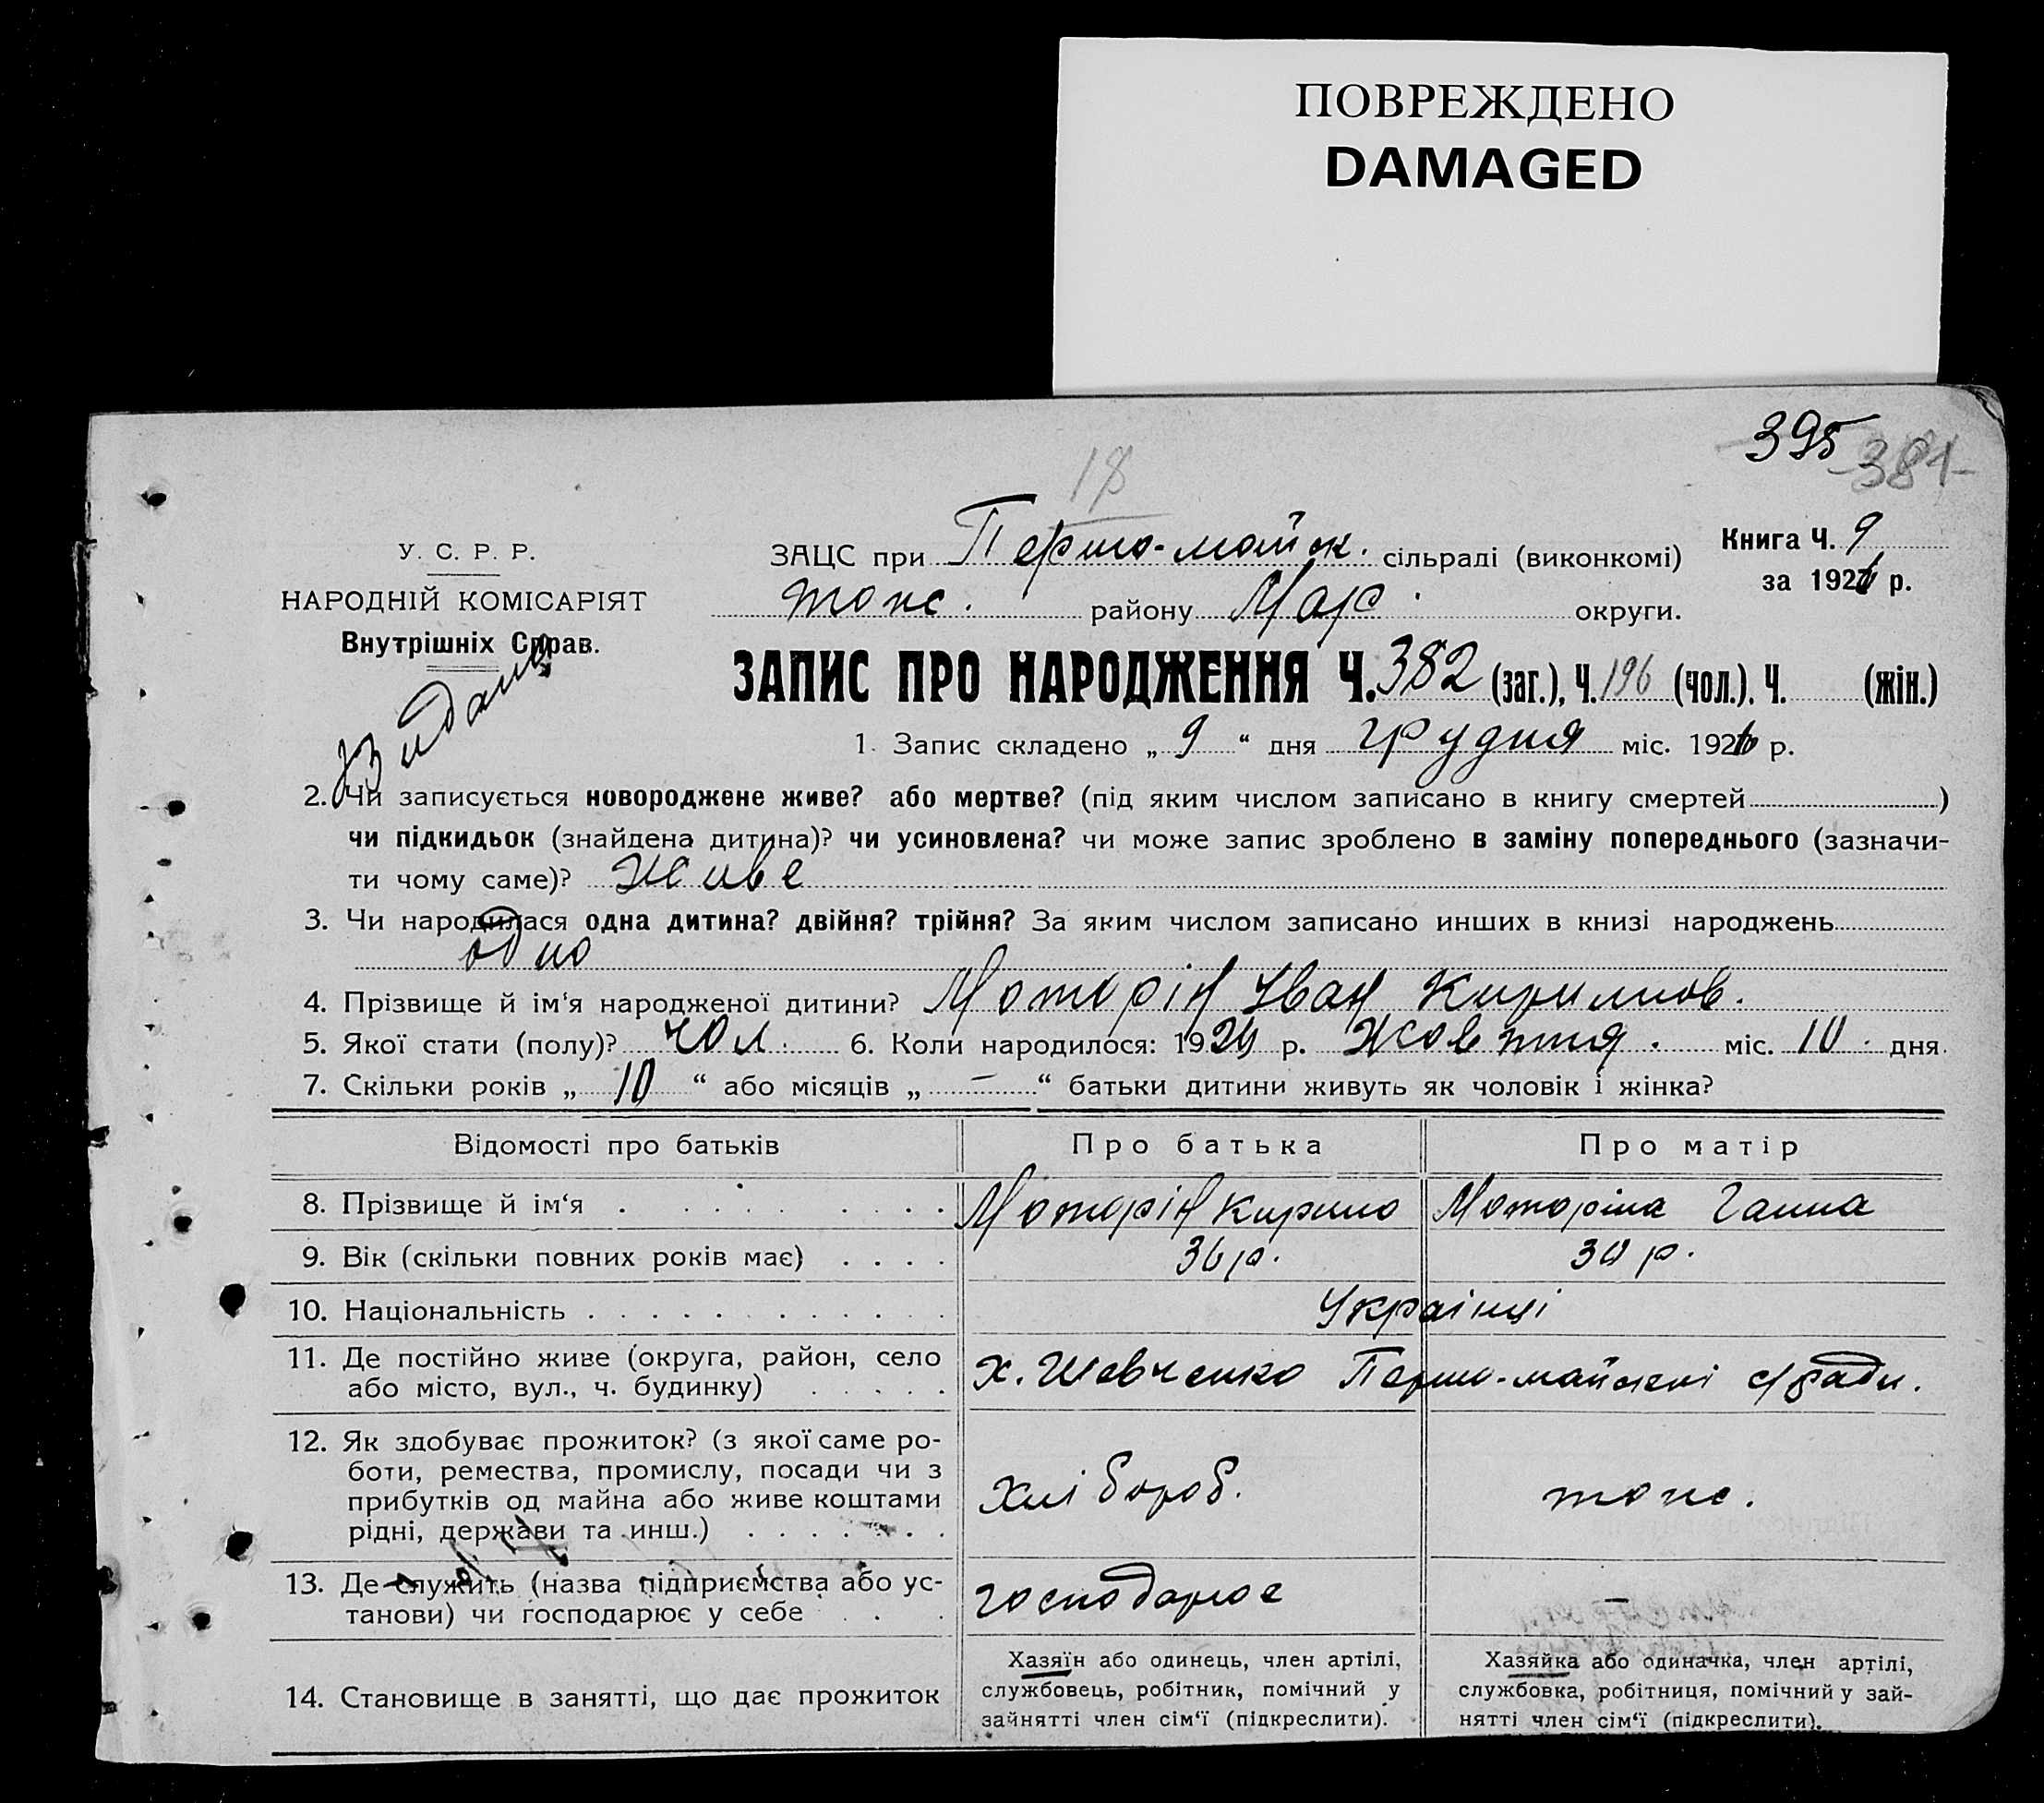 ПОВРЕЖДЕНО
DAMAGED
395 381
18
У. С. Р. Р.
НАРОДНІЙ КОМІСАРІЯТ
Внутрішніх Справ.
ЗАЦС при Першо-майск. сільраді (виконкомі)
тоже. району Мар. округи.
Книга Ч. 9
за 1926 р.
ЗАПИС ПРО НАРОДЖЕННЯ Ч. 382 (заг.), Ч. 196 (чол.). Ч. (жін.)
1. Запис складено „ 9 “ дня грудня міс. 1926 р.
2. Чи записується новороджене живе? або мертве? (під яким числом записано в книгу смертей )
чи підкидьок (знайдена дитина)? чи усиновлена? чи може запис зроблено в заміну попереднього (зазначи-
ти чому саме)? Живе
3. Чи народилася одна дитина? двійня? трійня? За яким числом записано инших в книзі народжень
одно
4. Прізвище й ім‘я народженої дитини? Моторін Іван Кирилов.
5. Якої стати (полу)? чол. 6. Коли народилося: 19 р. Жовтня. міс. 10. дня.
7. Скільки років „ 10 “ або місяців „ — “ батьки дитини живуть як чоловік і жінка?
Відомості про батьків Про батька Про матір
8. Прізвище й ім‘я Моторін Кирило Моторіна Ганна
9. Вік (скільки повних років має) 36 р. 30 р.
10. Національність Українці
11. Де постійно живе (округа, район, село
або місто, вул., ч. будинку)
х. Шевченко Першо-майскої с/ради.
12. Як здобуває прожиток? (з якої саме ро-
боти, ремества, промислу, посади чи з
прибутків од майна або живе коштами
рідні, держави та инш.)
Хлібороб. тоже.
13. Де служить (назва підприємства або ус-
танови) чи господарює у себе
господарює —
14. Становище в занятті, що дає прожиток
Хазяїн або одинець, член артілі,
службовець, робітник, помічний у
зайнятті член сім‘ї (підкреслити).
Хазяйка або одиначка, член артілі,
службовка, робітниця, помічний у зай-
нятті член сім‘ї (підкреслити).